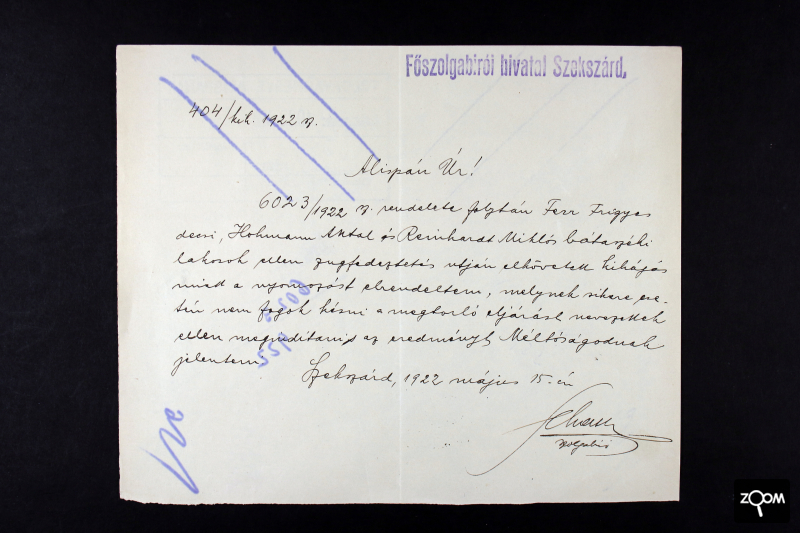 Főszolgabirói hivatal Szekszárd.
404/kih. 1922 sz.
Alispán Úr!
6023/1922 sz. rendelete folytán Ferr Frigyes
decsi, Hohmann Antal és Reinhardt Miklós bátaszéki
lakosok ellen zugfedeztetés utján elkövetett kihágás
miatt a nyomozást elrendeltem, melynek sikere ese-
tén nem fogok késni a megtorló eljárást nevezettek
ellen megindítani s az eredményt Méltóságodnak
jelentem.
Szekszárd, 1922 május 15-én
szolgabiró
ZOOM